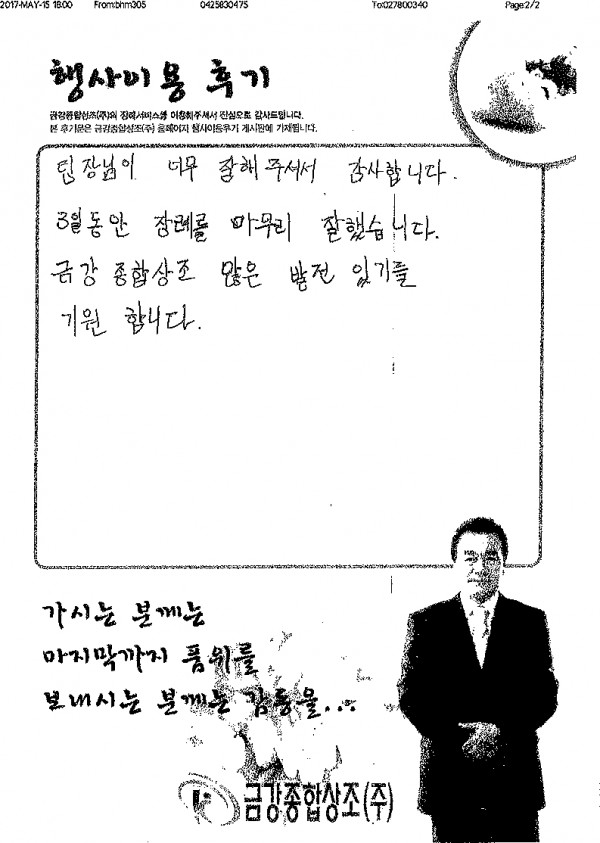 2017-MAY-15 18:00 From:bhm305 0425830475 To:027800340 Page:2/2
행사이용 후기
금강종합상조(주)의 장례서비스를 이용해주셔서 진심으로 감사드립니다.
본 후기문은 금강종합상조(주) 홈페이지 행사이용후기 게시판에 기재됩니다.
팀장님이 너무 잘해 주셔서 감사합니다.
3일동안 장례를 마무리 잘했습니다.
금강 종합상조 많은 발전 있기를
기원 합니다.
가시는 분께는
마지막까지 품위를
보내시는 분께는 감동을...
금강종합상조(주)